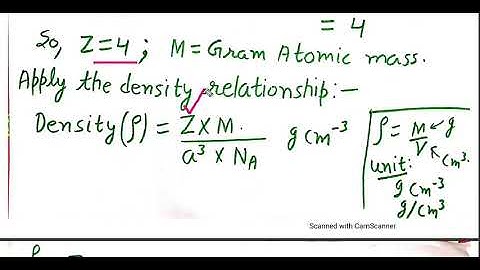 = 4
So, Z=4 ; M = Gram Atomic mass.
Apply the density relationship:—
Density(ρ) = Z × M. g cm⁻³
a³ × N_A
ρ = M ← g
V ← cm³.
unit:
g cm⁻³
g/cm³
Scanned with CamScanner